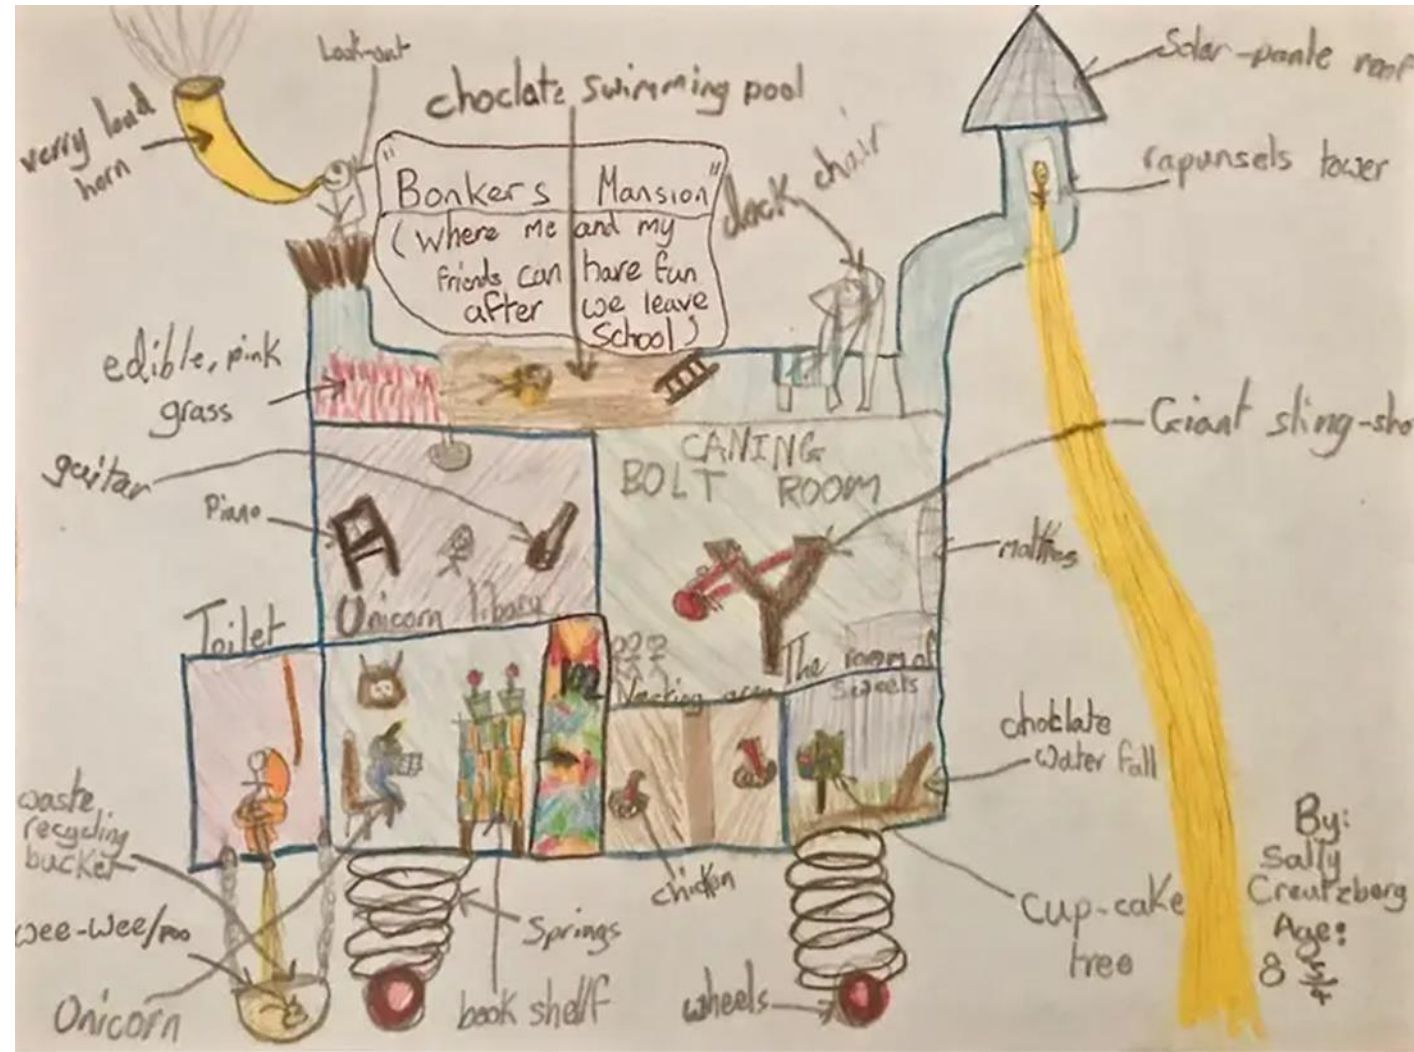 Look-out
verry loud
horn
choclate swimming pool
Solar-panle roof
rapunsels tower
"Bonkers Mansion"
(Where me and my
friends can have fun
after we leave
School)
deck chair
edible, pink
grass
guitar
Piano
CANING
BOLT ROOM
Giant sling-sho
mattres
Unicorn libary
Toilet
The room of
sweets
choclate
water fall
waste,
recycling
bucket
wee-wee/poo
Unicorn
Springs
book shelf
chicken
wheels
cup-cake
tree
By:
Sally
Creutzberg
Age:
8 5/4